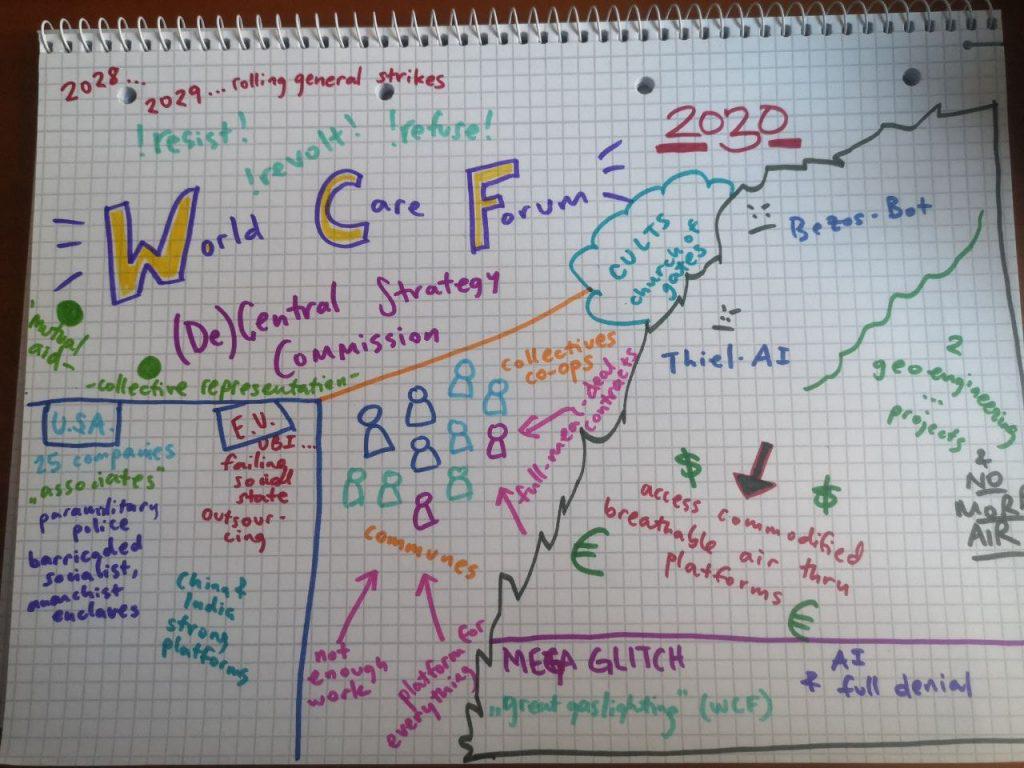 2028...
2029... rolling general strikes
!resist!
!revolt!
!refuse!
World Care Forum
(De)Central Strategy
Commission
mutual
aid-
-collective representation-
U.S.A.
25 companies
"associates"
paramilitary
police
barricaded
socialist,
anarchist
enclaves
E.U.
UBI...
failing
social
state
outsour-
cing
China &
India
strong
platforms
collectives
co-ops
full-meal-deal
contracts
communes
not
enough
work
platform for
everything
2030
CULTS
church of
gates
Bezos-Bot
Thiel-AI
2
geo-engineering
...
projects
&
NO
MORE
AIR
$
$
access commodified
breathable air thru
platforms
€
€
MEGA GLITCH
"great gaslighting" (WCF)
AI
& full denial